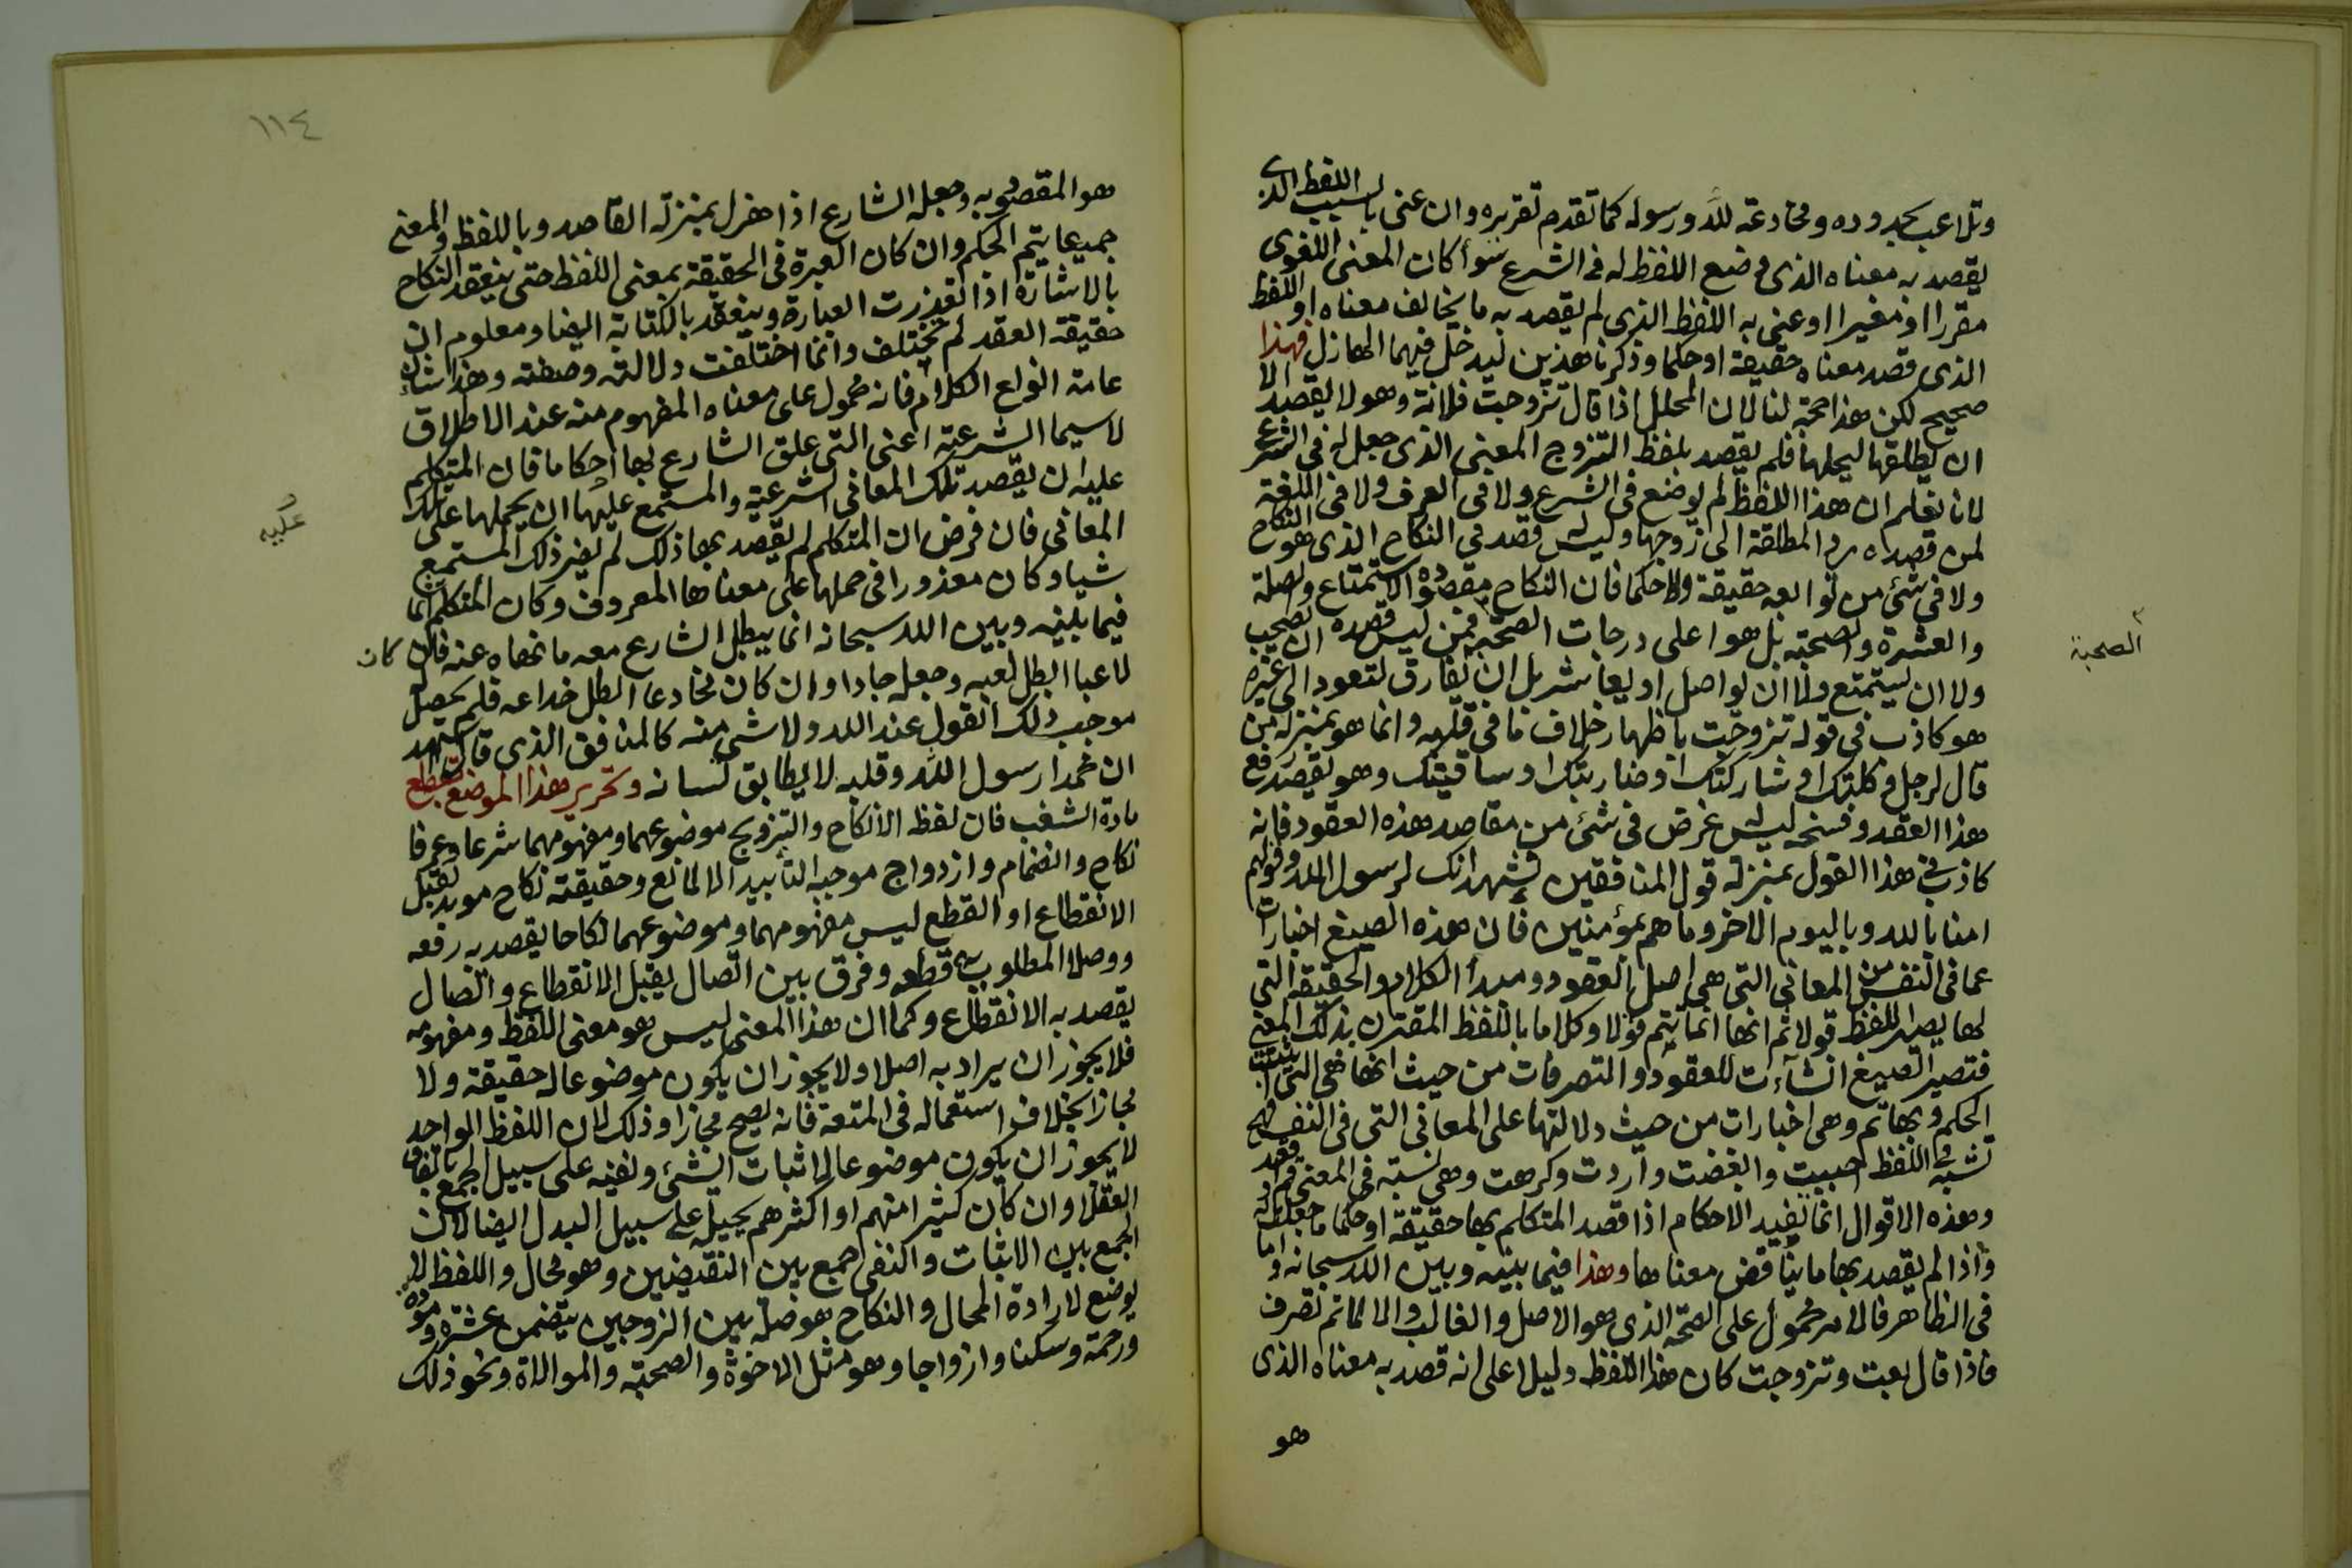 وتلاعب بحدوده ومخادعة لله ورسوله كما تقدم تقريره وان عنى بالسبب اللفظ الذى
يقصد به معناه الذى وضع اللفظ له فى الشرع سوأ كان المعنى اللغوى
مقررا او مغيرا او عنى به اللفظ الذى لم يقصد به ما يخالف معناه او اللفظ
الذى قصد معناه حقيقة او حكما وذكرنا هذين ليدخل فيهما الهازل فهذا
صحيح لكن هذا حجة لنا لان المحلل اذا قال تزوجت فلانة وهو لا يقصد الا
ان يطلقها ليحلها فلم يقصد بلفظ التزوج المعنى الذى جعل له فى الشرع
لانا نعلم ان هذا اللفظ لم يوضع فى الشرع ولا فى العرف ولا فى اللغة
لمن قصده رد المطلقة الى زوجها وليس قصد فى النكاح الذى هو النكاح
ولا فى شئ من توابعه حقيقة ولا حكما فان النكاح مقصوده الاستمتاع وصلة
والعشرة والصحبة بل هو اعلى درجات الصحبة فمن ليس قصده ان يصحب
الصحبة
ولا ان يستمتع ولا ان يواصل او يعاشر بل ان يفارق لتعود الى غيره
هو كاذب فى قوله تزوجت باظهار خلاف ما فى قلبه وانما هو بمنزلة من
قال لرجل وكلتك او شاركتك او ضاربتك او ساقيتك وهو يقصد رفع
هذا العقد وفسخه ليس غرض فى شئ من مقاصد هذه العقود فانه
كاذب فى هذا القول بمنزلة قول المنافقين نشهد انك لرسول الله وقولهم
امنا بالله وباليوم الاخر وما هم بمؤمنين فان هذه الصيغ اخبارات
عما فى النفس من المعانى التى هى اصل العقود ومبدأ الكلام والحقيقة التى
لها يصير اللفظ قولا ثم انها انما يتم قولا وكلاما باللفظ المقترن بذلك المعنى
فتصير الصيغ انشاءات للعقود والتصرفات من حيث انها هى التى اثبتت
الحكم وبها تم وهى اخبارات من حيث دلالتها على المعانى التى فى النفس فهى
تشبه فى اللفظ احببت وابغضت واردت وكرهت وهى نسبة فى المعنى قم واقعد
وهذه الاقوال انما تفيد الاحكام اذا قصد المتكلم بها حقيقة او حكما ما جعلت له
واذا لم يقصد بها ما يناقض معناها وهذا فيما بينه وبين الله سبحانه واما
فى الظاهر فالامر محمول على الصحة الذى هو الاصل والغالب والا لما تم تصرف
فاذا قال بعت وتزوجت كان هذا اللفظ دليلا على انه قصد به معناه الذى
هو
١١٤
هو المقصود به وجعله الشارع اذا هزل بمنزلة القاصد وباللفظ والمعنى
جميعا يتم الحكم وان كان العبرة فى الحقيقة بمعنى اللفظ حتى ينعقد النكاح
بالاشارة اذا تعذرت العبارة وينعقد بالكتابة ايضا ومعلوم ان
حقيقة العقد لم تختلف وانما اختلفت دلالته وصفته وهذا شأن
عامة انواع الكلام فانه محمول على معناه المفهوم منه عند الاطلاق
لاسيما الشرعية اعنى التى علق الشارع بها احكاما فان المتكلم
عليه ان يقصد تلك المعانى الشرعية والمستمع عليها ان يحملها على تلك
عليه
المعانى فان فرض ان المتكلم لم يقصد بها ذلك لم يضر ذلك المستمع
شيا وكان معذورا فى حملها على معناها المعروف وكان المتكلم اثما
فيما بينه وبين الله سبحانه انما يبطل الشارع معه ما نهاه عنه فان كان
لاعبا ابطل لعبه وجعله جادا وان كان مخادعا ابطل خداعه فلم يحصل
موجب ذلك القول عند الله ولا شئ منه كالمنافق الذى قال اشهد
ان محمدا رسول الله وقلبه لا يطابق لسانه وتحرير هذا الموضع يقطع
مادة الشغب فان لفظ الانكاح والتزويج موضوعهما ومفهومهما شرعا وعرفا
نكاح وانضمام وازدواج موجبه التأبيد الا لمانع وحقيقته نكاح موبد يقبل
الانقطاع او القطع ليس مفهومهما وموضوعهما نكاحا يقصد به رفعه
ووصلا المطلوب به قطعه وفرق بين اتصال يقبل الانقطاع واتصال
يقصد به الانقطاع وكما ان هذا المعنى ليس هو معنى اللفظ ومفهومه
فلا يجوز ان يراد به اصلا ولا يجوز ان يكون موضوعا له حقيقة ولا
مجازا بخلاف استعماله فى المتعة فانه يصح مجازا وذلك لان اللفظ الواحد
لا يجوز ان يكون موضوعا لاثبات الشئ ونفيه على سبيل الجمع باتفاق
العقلا وان كان كثيرا منهم او اكثرهم يحيله على سبيل البدل ايضا لان
الجمع بين الاثبات والنفى جمع بين النقيضين وهو محال واللفظ لا
يوضع لارادة المحال والنكاح هو صلة بين الزوجين يتضمن عشرة ومودة
ورحمة وسكنا وازواجا وهو مثل الاخوة والصحبة والموالاة ونحو ذلك